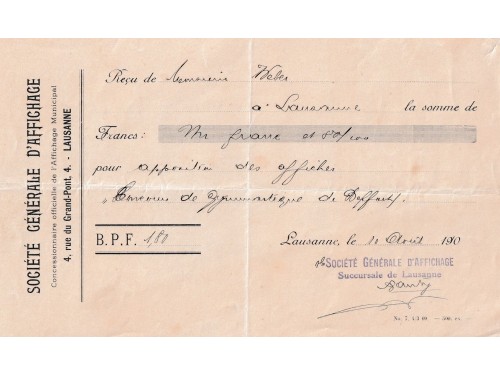 SOCIÉTÉ GÉNÉRALE D'AFFICHAGE
Concessionnaire officielle de l'Affichage Municipal
4, rue du Grand-Pont, 4. - LAUSANNE
Reçu de Monsieur Weber
à Lausanne la somme de
Francs: Un franc et 80/100
pour apposition des affiches
"Concours de gymnastique de
B. P. F. 1,80
Lausanne, le Août 1910
SOCIÉTÉ GÉNÉRALE D'AFFICHAGE
Succursale de Lausanne
No. 7.